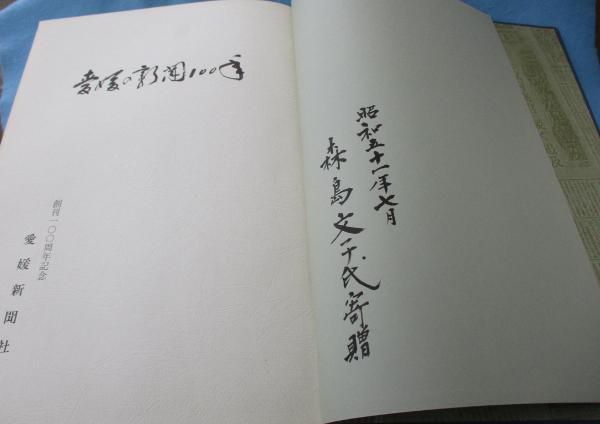 昭和五十一年七月
森島文子氏寄贈
愛媛の新聞100年
創刊一〇〇周年記念
愛媛新聞社